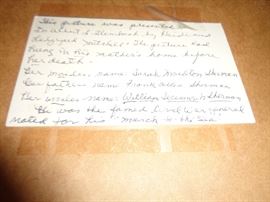 This picture was presented
To Albert G. Steinbach by Heidi and
The picture had
hung in his mother's home before
her death.
Her mother's name: Sarah Sherman
Her father's name: Frank Allen Sherman
Her uncle's name: William Tecumseh Sherman
He was the famed Civil War general
noted for his "March to the Sea"